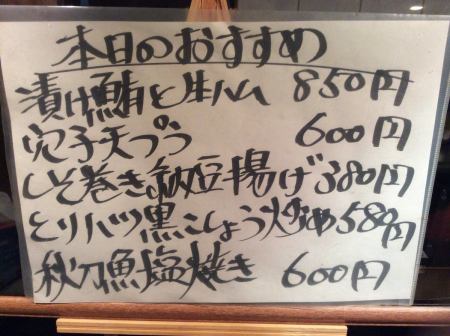 本日のおすすめ
漬け鮪と生ハム 850円
穴子天プラ 600円
しそ巻き納豆揚げ380円
とりハツ黒こしょう炒め580円
秋刀魚塩焼き 600円